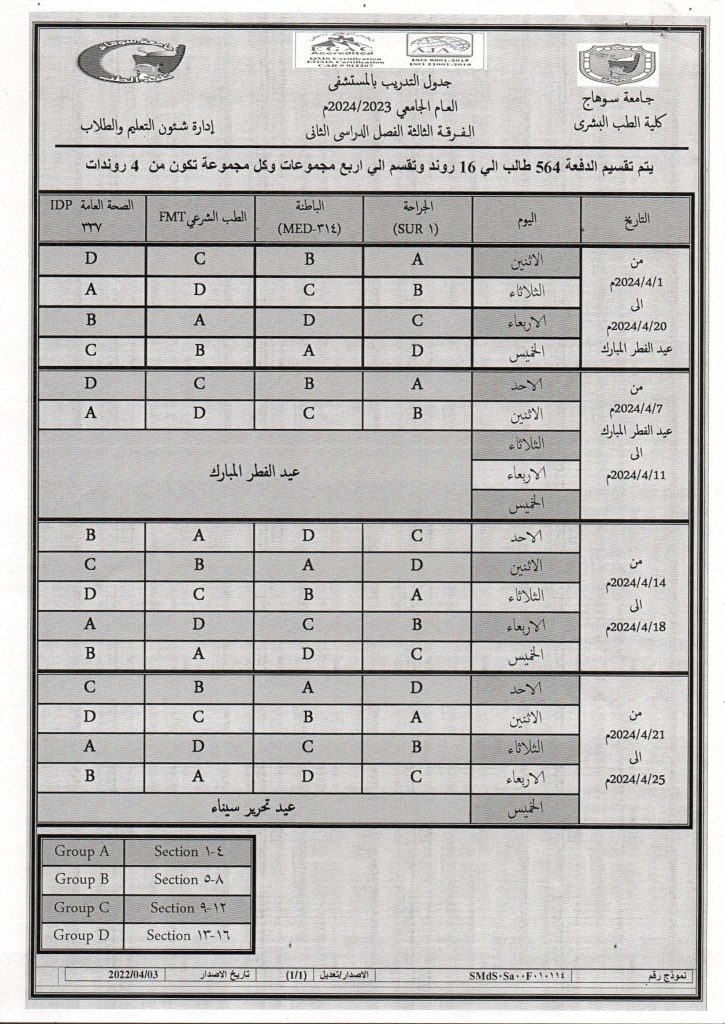 جامعة سوهاج
كلية الطب البشرى
EGAC
Accredited
QMS Certification
EOMS Certification
CAB # 012207
AJA
ISO 9001:2015
ISO 21001:2018
جدول التدريب بالمستشفى
العام الجامعي 2024/2023م
الفرقة الثالثة الفصل الدراسى الثانى
جامعة سوهاج
كلية الطب
إدارة شئون التعليم والطلاب
يتم تقسيم الدفعة 564 طالب الي 16 روند وتقسم الي اربع مجموعات وكل مجموعة تكون من 4 روندات
التاريخ اليوم الجراحة (SUR ١) الباطنة (MED-٣١٤) الطب الشرعي FMT الصحة العامة IDP ٣٣٧
من 2024/4/1م الى 2024/4/20م عيد الفطر المبارك
الاثنين A B C D
الثلاثاء B C D A
الاربعاء C D A B
الخميس D A B C
من 2024/4/7م عيد الفطر المبارك الى 2024/4/11م
الاحد A B C D
الاثنين B C D A
الثلاثاء
الاربعاء عيد الفطر المبارك
الخميس
من 2024/4/14م الى 2024/4/18م
الاحد C D A B
الاثنين D A B C
الثلاثاء A B C D
الاربعاء B C D A
الخميس C D A B
من 2024/4/21م الى 2024/4/25م
الاحد D A B C
الاثنين A B C D
الثلاثاء B C D A
الاربعاء C D A B
الخميس عيد تحرير سيناء
Group A Section ١-٤
Group B Section ٥-٨
Group C Section ٩-١٢
Group D Section ١٣-١٦
نموذج رقم SMdS٠Sa٠٠F٠١٠١١٤ الاصدار/تعديل (1/1) تاريخ الاصدار 2022/04/03